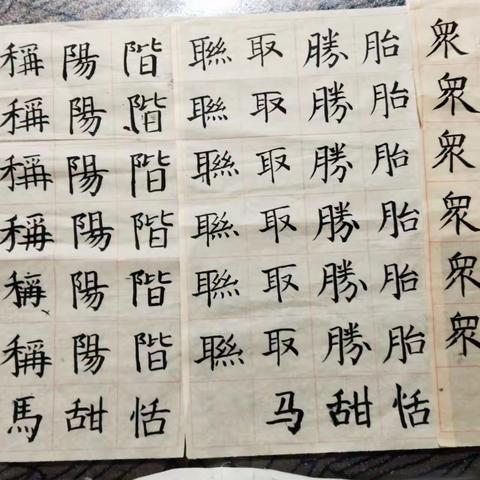 稱陽階聯取勝胎衆
稱陽階聯取勝胎衆
稱陽階聯取勝胎衆
稱陽階聯取勝胎衆
稱陽階聯取勝胎衆
稱陽階聯取勝胎衆
馬甜恬马甜恬